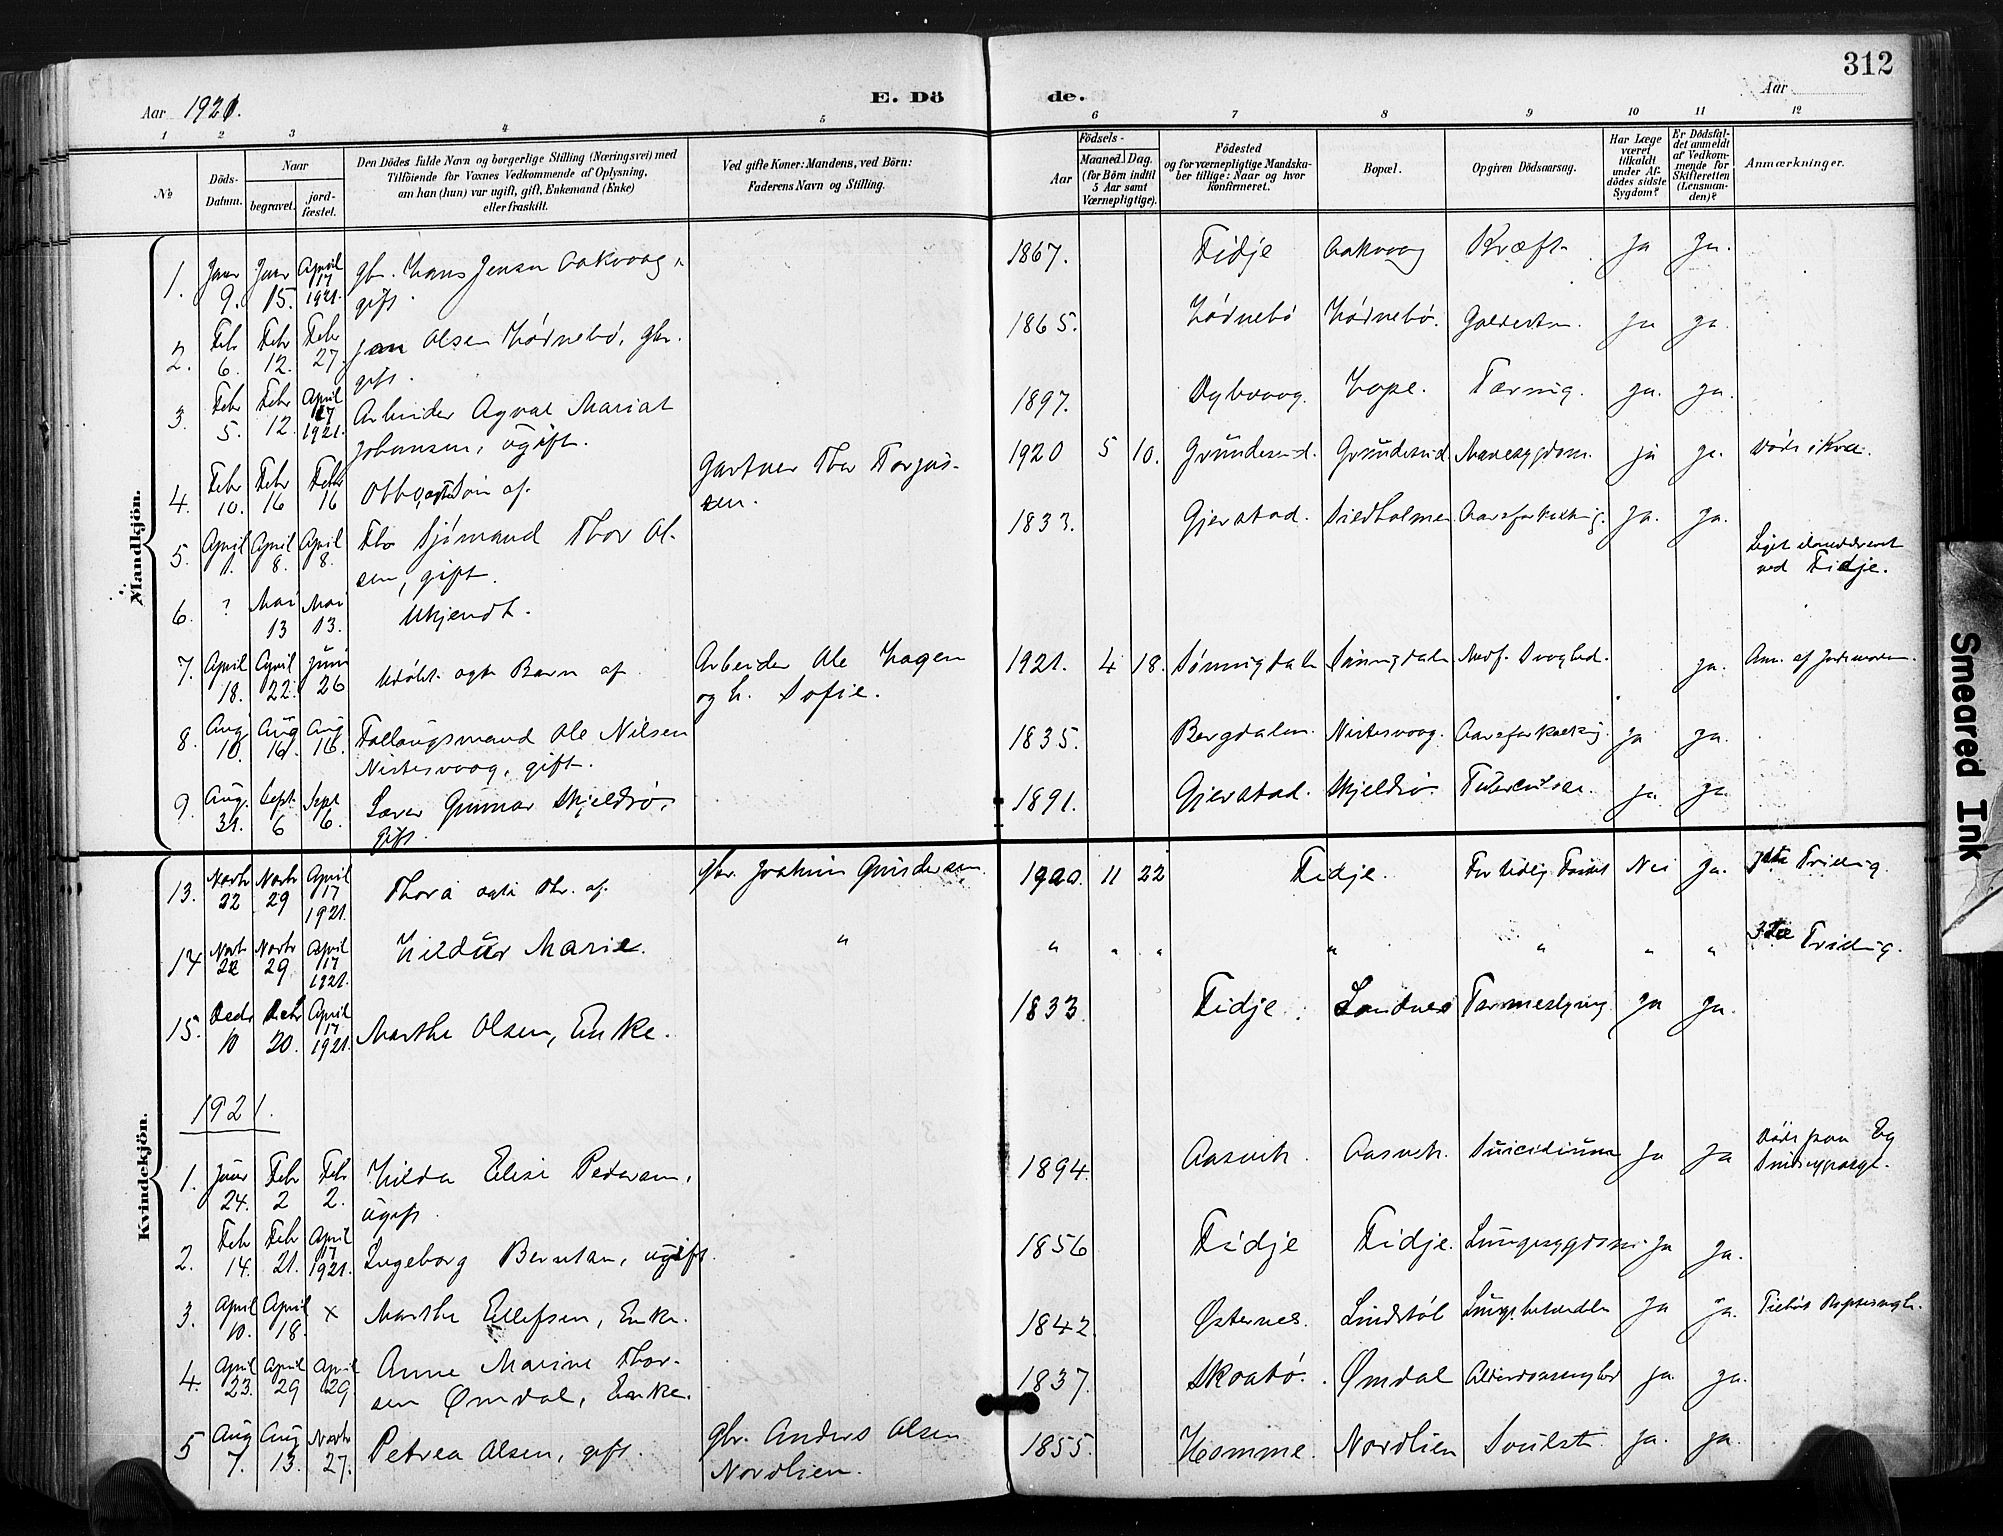 312
Aar 1921.
E. Dö de.
Aar
1 2 3 4 5 6 7 8 9 10 11 12
№
Döds-Datum.
Naar
begravet.
jord-fæstet.
Den Dödes fulde Navn og borgerlige Stilling (Næringsvei) med
Tilföiende for Voxnes Vedkommende af Oplysning,
om han (hun) var ugift, gift, Enkemand (Enke)
eller fraskilt.
Ved gifte Koner: Mandens, ved Börn:
Faderens Navn og Stilling.
Födsels-
Aar
Maaned. Dag.
(for Börn indtil
5 Aar samt
Værnepligtige).
Födested
og for værnepligtige Mandska-
ber tillige: Naar og hvor
konfirmeret.
Bopæl.
Opgiven Dödsaarsag.
Har Læge
været
tilkaldt
under Af-
dödes sidste
Sygdom?
Er Dödsfal-
det anmeldt
af Vedkom-
mende for
Skifteretten
(Lensman-
den)?
Anmærkninger.
Mandkjön.
1. Janr 9. Janr 15. April 17 1921. gbr. Hans Jensen Aakvaag, gift. 1867. Fidje Aakvaag Kræft Ja Ja.
2. Febr 6. Febr 12. Febr 27. Jan Olsen Hødnebø, gbr. gift. 1865. Hødnebø Hødnebø. Galdesten. Ja Ja.
3. Febr 5. Febr 12. April 17 1921. Arbeider Agval Mariat Johansen, ugift. 1897. Dybvaag. Hope. Tæring. Ja. Ja.
4. Febr 10. Febr 16 Febr 16 ægte Søn af. Gartner Thor Torjus-sen. 1920 5 10. Grundesund. Grundesund. Mavesygdom. Ja Ja. Døde i Kra.
5. April 1. April 8. April 8. Fhv Sjømand Thor Ol-sen, gift. 1833. Gjerstad. Siedholmen Aareforkalkning. Ja. Ja.
6. ? Mai 13 Mai 13. Ukjendt. Liget ved Fidje.
7. April 18. April 22. Juni 26 Udøbt ægte Barn af Arbeider Ole Hagen og h. Sofie. 1921. 4 18. Sønnigdalen Sønnigdalen Medf. Svaghed. Ja. Anm. af Jordmoderen.
8. Aug 10. Aug 16. Aug 16. Fallougsmand Ole Nilsen Nistesvaag, gift. 1835. Bergdalen. Nistesvaag. Aareforkalkning Ja Ja.
9. Aug. 31. Sept. 6 Sept 6. Lærer Gunnar Skjeldsø, gift. 1891. Gjerstad. Skjeldsø. Tuberculose. Ja Ja
Kvindekjön.
13. Novbr 22 Novbr 29 April 17 1921. Thora ægte Dtr. af. gbr. Joakim Gundersen. 1920. 11 22 Fidje. For tidlig Født Nei Ja. 2den Tvilling.
14 Novbr 22 Novbr 29 April 17 1921. Hildur Marie. " " " " " " " " 3die Tvilling.
15. Decbr 10 Decbr 20. April 17 1921. Marthe Olsen, Enke. 1833. Fidje. Sandnes Tarmeslyng Ja Ja.
1921.
1. Janr 24. Febr 2 Febr 2. Hilda Elise Pedersen, ugift. 1894. Aasvik. Aasvik. Suicidium Ja Ja Døde paa Eg Sindsygeasyl.
2. Febr 14. Febr 21. April 17 1921. Ingeborg Berntsen, ugift. 1856 Fidje Fidje. Lungesygdom. Ja Ja.
3. April 10. April 18. × Marthe Ellefsen, Enke. 1842. Østernes. Lindstøl Lungebetændelse Ja Ja.
4. April 23. April 29 April 29. Anne Marine Thor-sen Ømdal, Enke. 1837. Skaatø. Ømdal Alderdomssvaghed Ja Ja.
5 Aug 7. Aug 13. Novbr 27. Petrea Olsen, gift. gbr. Anders Olsen Nordlien. 1855. Homme. Nordlien Ja. Ja.
Smeared Ink